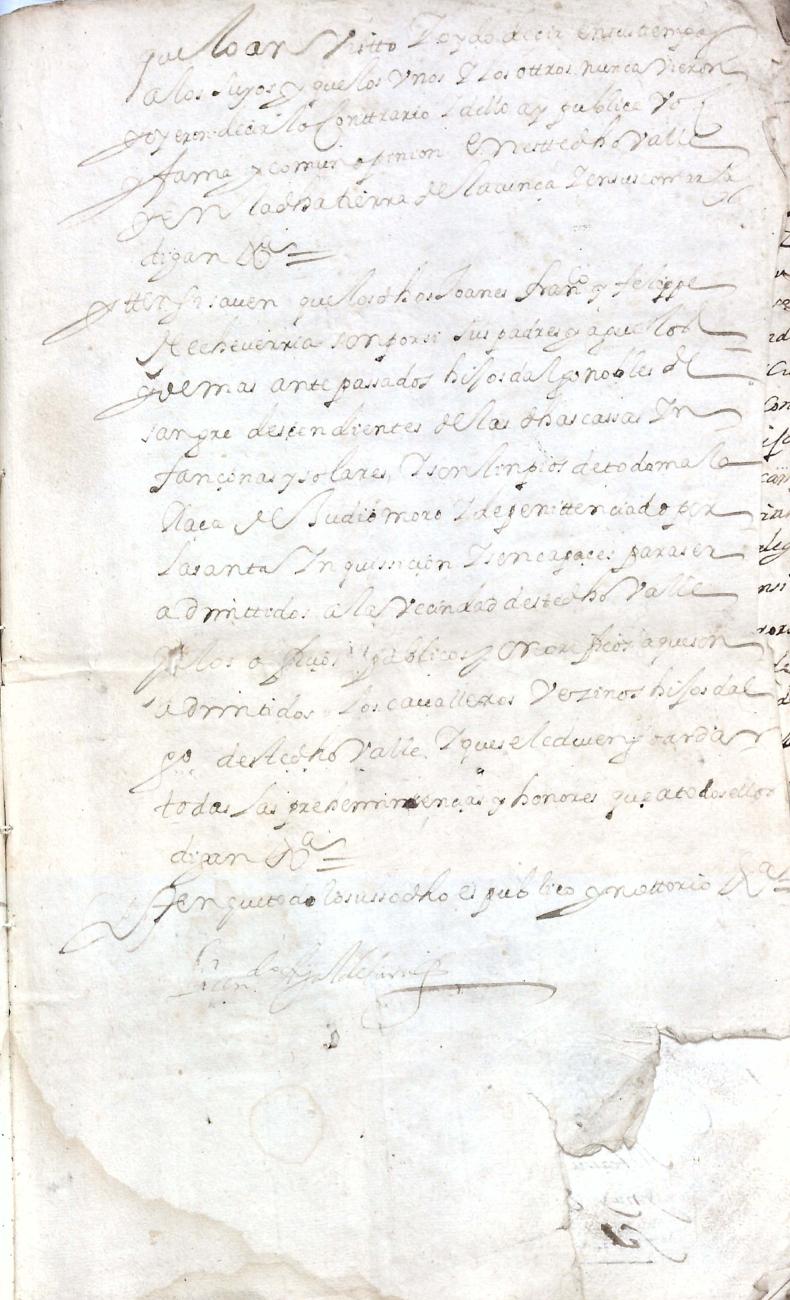 que lo an visto Y oydo decir en sus tiempos
a los suyos y que los Unos Y los ottros nunca vieron
ny oyeron decir lo Conttrario Y dello ay publica Voz
y fama y comun opinion En estte dho Valle
y en la dha tierra de Y en sus comarcas
digan &ª
Ytten si saven que los dhos Joanes franco y felippe
de echeverria son por si sus padres y aguelos
y demas antepassados hijos dalgo nobles de
sangre descendientes de las dhas cassas Yn
fançonas y solares, Y son limpios de toda mala
Raca de Judio moro Y de penittenciado por
la santa Ynquissicion Y son capaces para ser
admittidos a la Vecindad deste dho Valle
y a los officios publicos y onorificos a que son
admitidos los cavalleros Vezinos hijos dal
go deste dho Valle, Y que se le deven guardar
todas las preheminencias y honores que a todos ellos
digan &ª
Yten que todo lo sussodho es publico y nottorio &ª